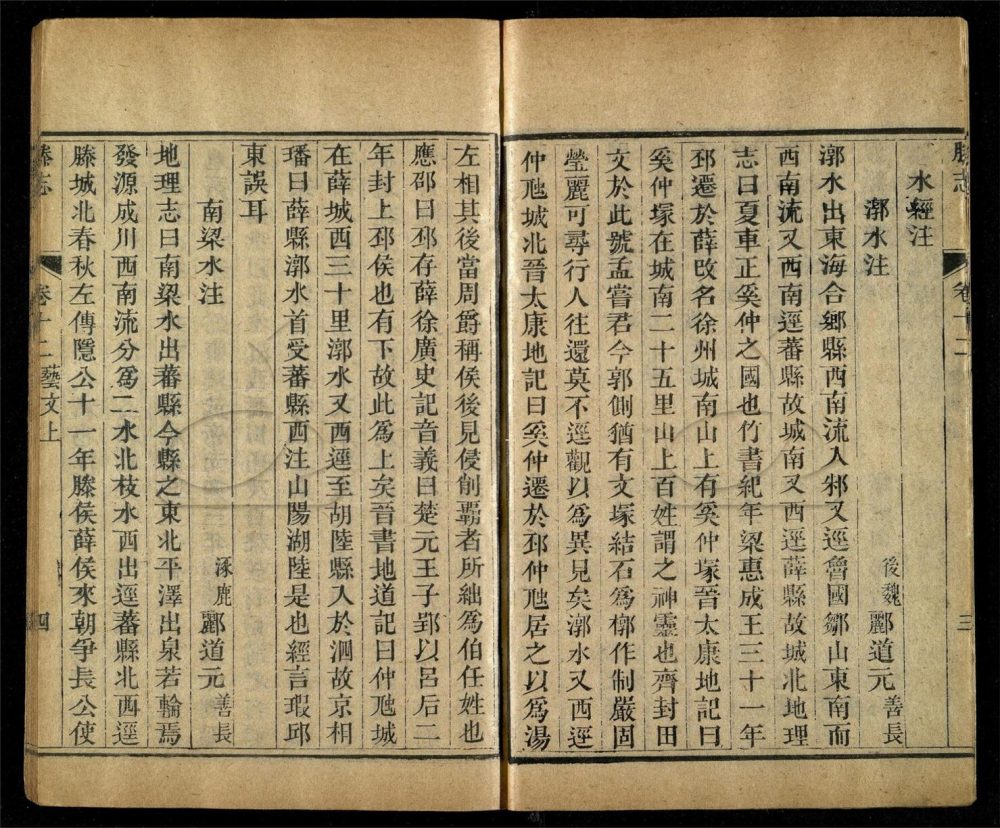 滕志 卷十二 三
水經注
漷水注 後魏酈道元善長
漷水出東海合鄉縣西南流入邾又逕魯國鄒山東南而
西南流又西南逕蕃縣故城南又西逕薛縣故城北地理
志曰夏車正奚仲之國也竹書紀年梁惠成王三十一年
邳遷於薛改名徐州城南山上有奚仲塚晉太康地記曰
奚仲塚在城南二十五里山上百姓謂之神靈也齊封田
文於此號孟嘗君今郭側猶有文塚結石爲槨作制嚴固
瑩麗可尋行人往還莫不逕觀以爲異見矣漷水又西逕
仲虺城北晉太康地記曰奚仲遷於邳仲虺居之以爲湯
左相其後當周爵稱侯後見侵削霸者所絀爲伯任姓也
應邵曰邳存薛徐廣史記音義曰楚元王子郢以呂后二
年封上邳侯也有下故此爲上矣晉書地道記曰仲虺城
在薛城西三十里漷水又西逕至胡陸縣入於泗故京相
璠曰薛縣漷水首受蕃縣西注山陽湖陸是也經言瑕邱
東誤耳
南梁水注 涿鹿酈道元善長
地理志曰南梁水出蕃縣今縣之東北平澤出泉若輪焉
發源成川西南流分爲二水北枝水西出逕蕃縣北西逕
滕城北春秋左傳隱公十一年滕侯薛侯來朝争長公使
滕志 卷十二藝文上 四